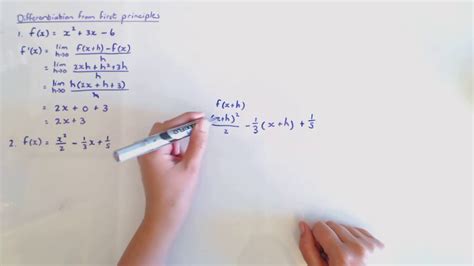 Differentiation from first principles
1. f(x) = x² + 3x - 6
f'(x) = lim h→0 f(x+h) - f(x) / h
= lim h→0 2xh + h² + 3h / h
= lim h→0 h(2x + h + 3) / h
= 2x + 0 + 3
= 2x + 3
2. f(x) = x²/2 - 1/3 x + 1/5
f(x+h)
(x+h)²/2 - 1/3 (x+h) + 1/5